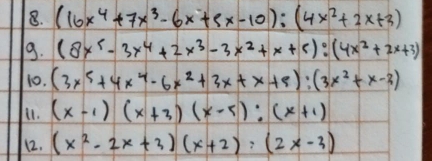 8. (16x⁴ + 7x³ - 6x + 5x - 10) : (4x² + 2x + 3)
9. (8x⁵ - 3x⁴ + 2x³ - 3x² + x + 5) : (4x² + 2x + 3)
10. (3x⁵ + 4x⁴ - 6x² + 3x + x + 8) : (3x² + x - 3)
11. (x - 1) (x + 3) (x - 5) : (x + 1)
12. (x² - 2x + 3) (x + 2) : (2x - 3)